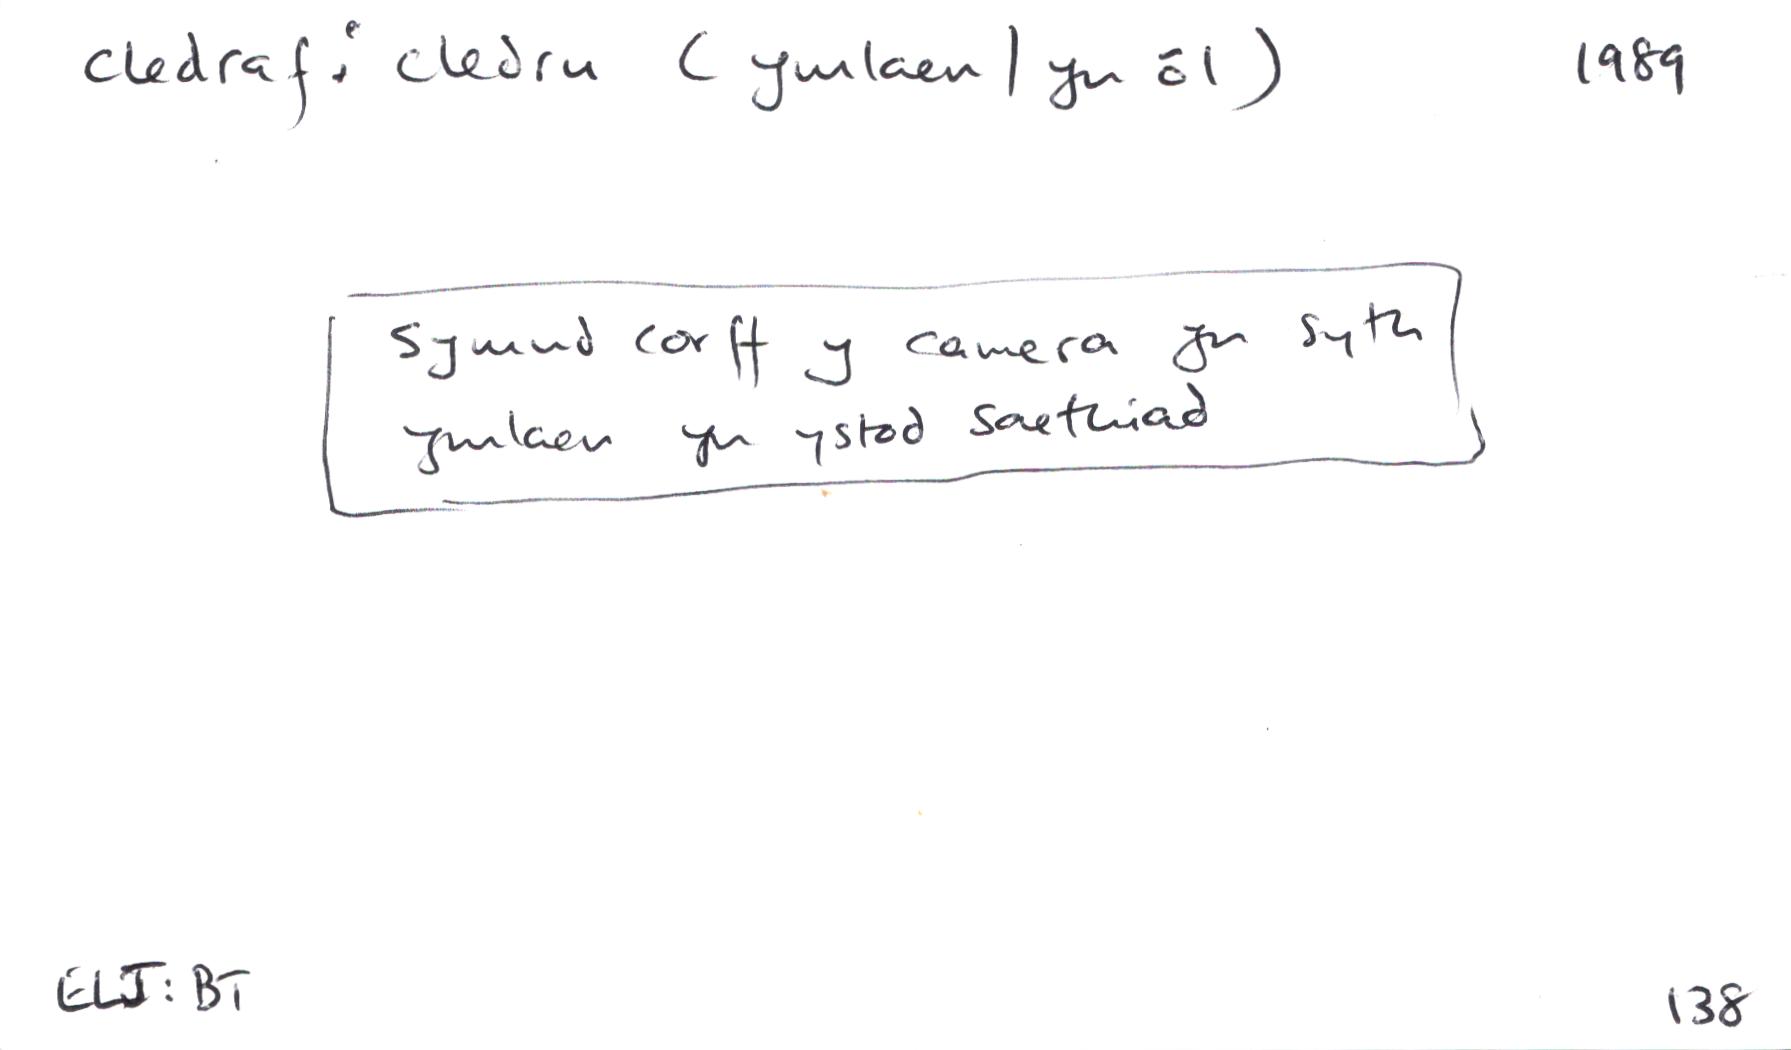 cledraf: cledru (ymlaen / yn ôl) 1989
Symud corff y camera yn syth
ymlaen yn ystod saethiad
ELJ: BT 138